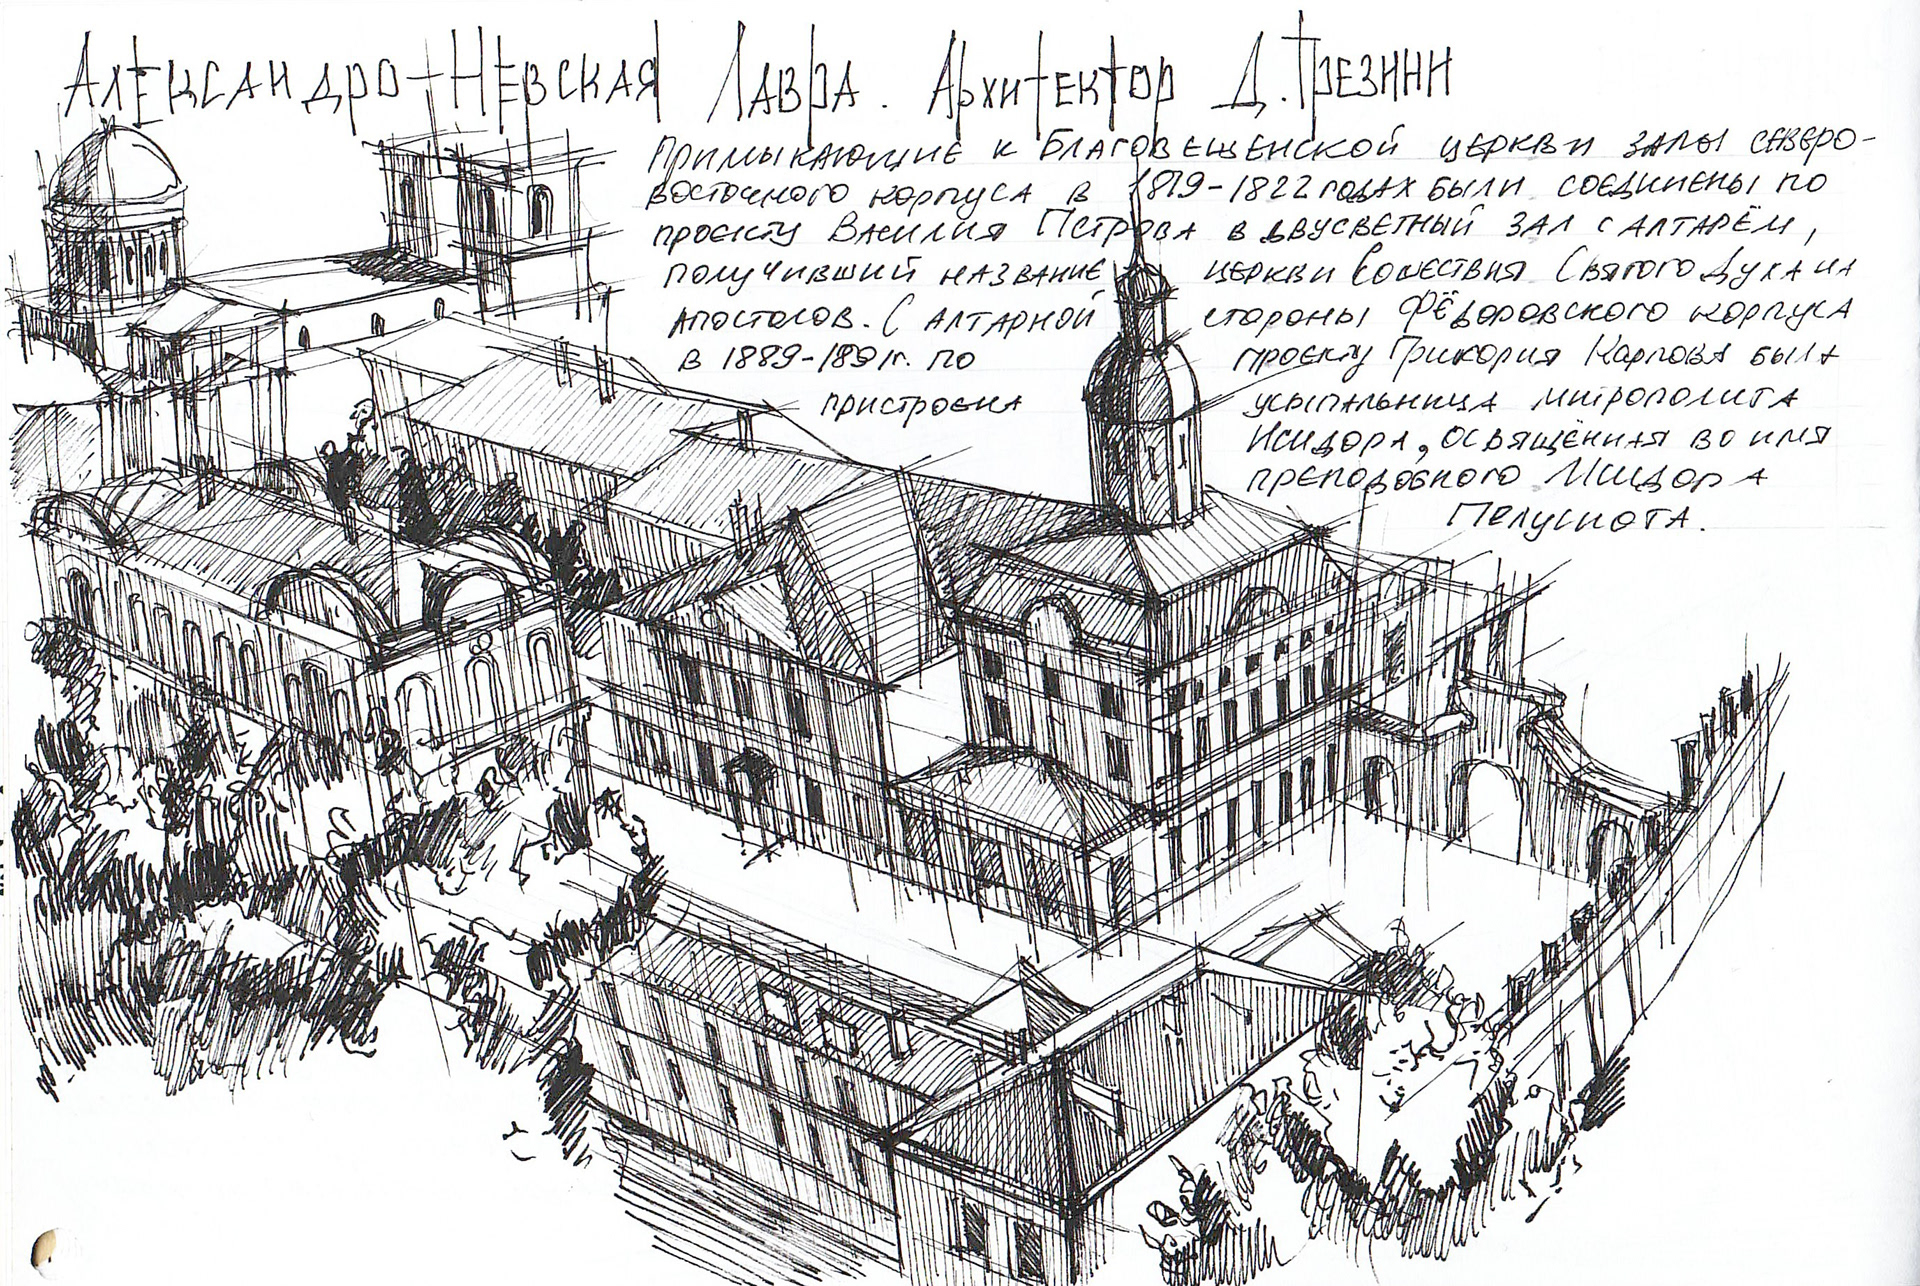 Александро-Невская Лавра. Архитектор Д. Трезини
Примыкающие к Благовещенской церкви залы северо-
восточного корпуса в 1819-1822 годах были соединены по
проекту Василия Петрова в двусветный зал с алтарём,
получивший название церкви Сошествия Святого Духа на
апостолов. С алтарной стороны Фёдоровского корпуса
в 1889-1891г. по проекту Григория Карпова была
пристроена усыпальница митрополита
Исидора, освящённая во имя
преподобного Исидора
Пелусиота.